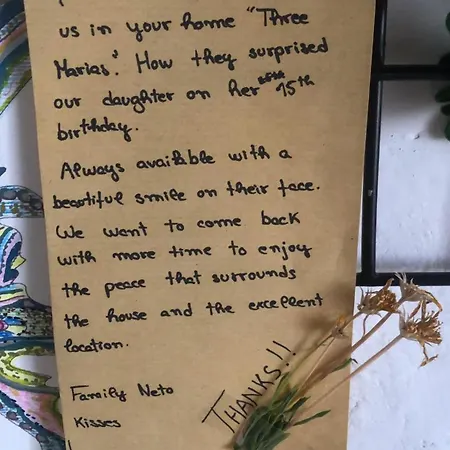 us in your home "Three
Marias". How they surprised
our daughter on her 15th
birthday.
Always available with a
beautiful smile on their face.
We want to come back
with more time to enjoy
the peace that surrounds
the house and the excellent
location.
Family Neto
Kisses
THANKS!!